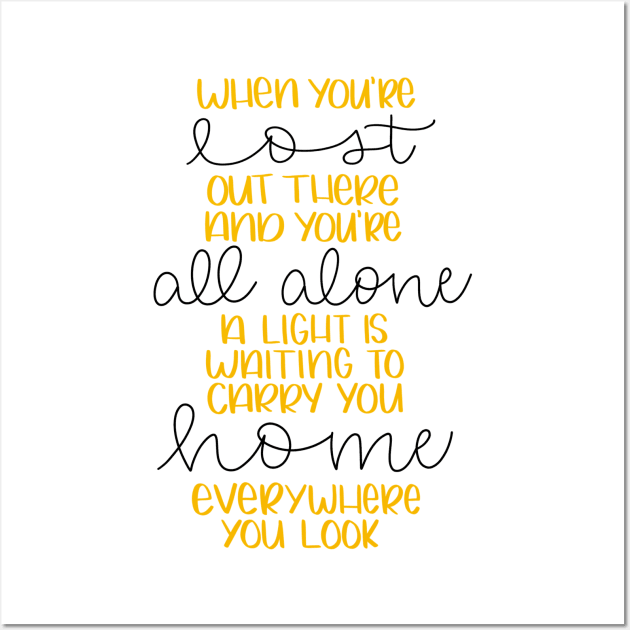 WHEN YOU'RE
lost
OUT THERE
AND YOU'RE
all alone
A LIGHT IS
WAITING TO
CARRY YOU
home
EVERYWHERE
YOU LOOK